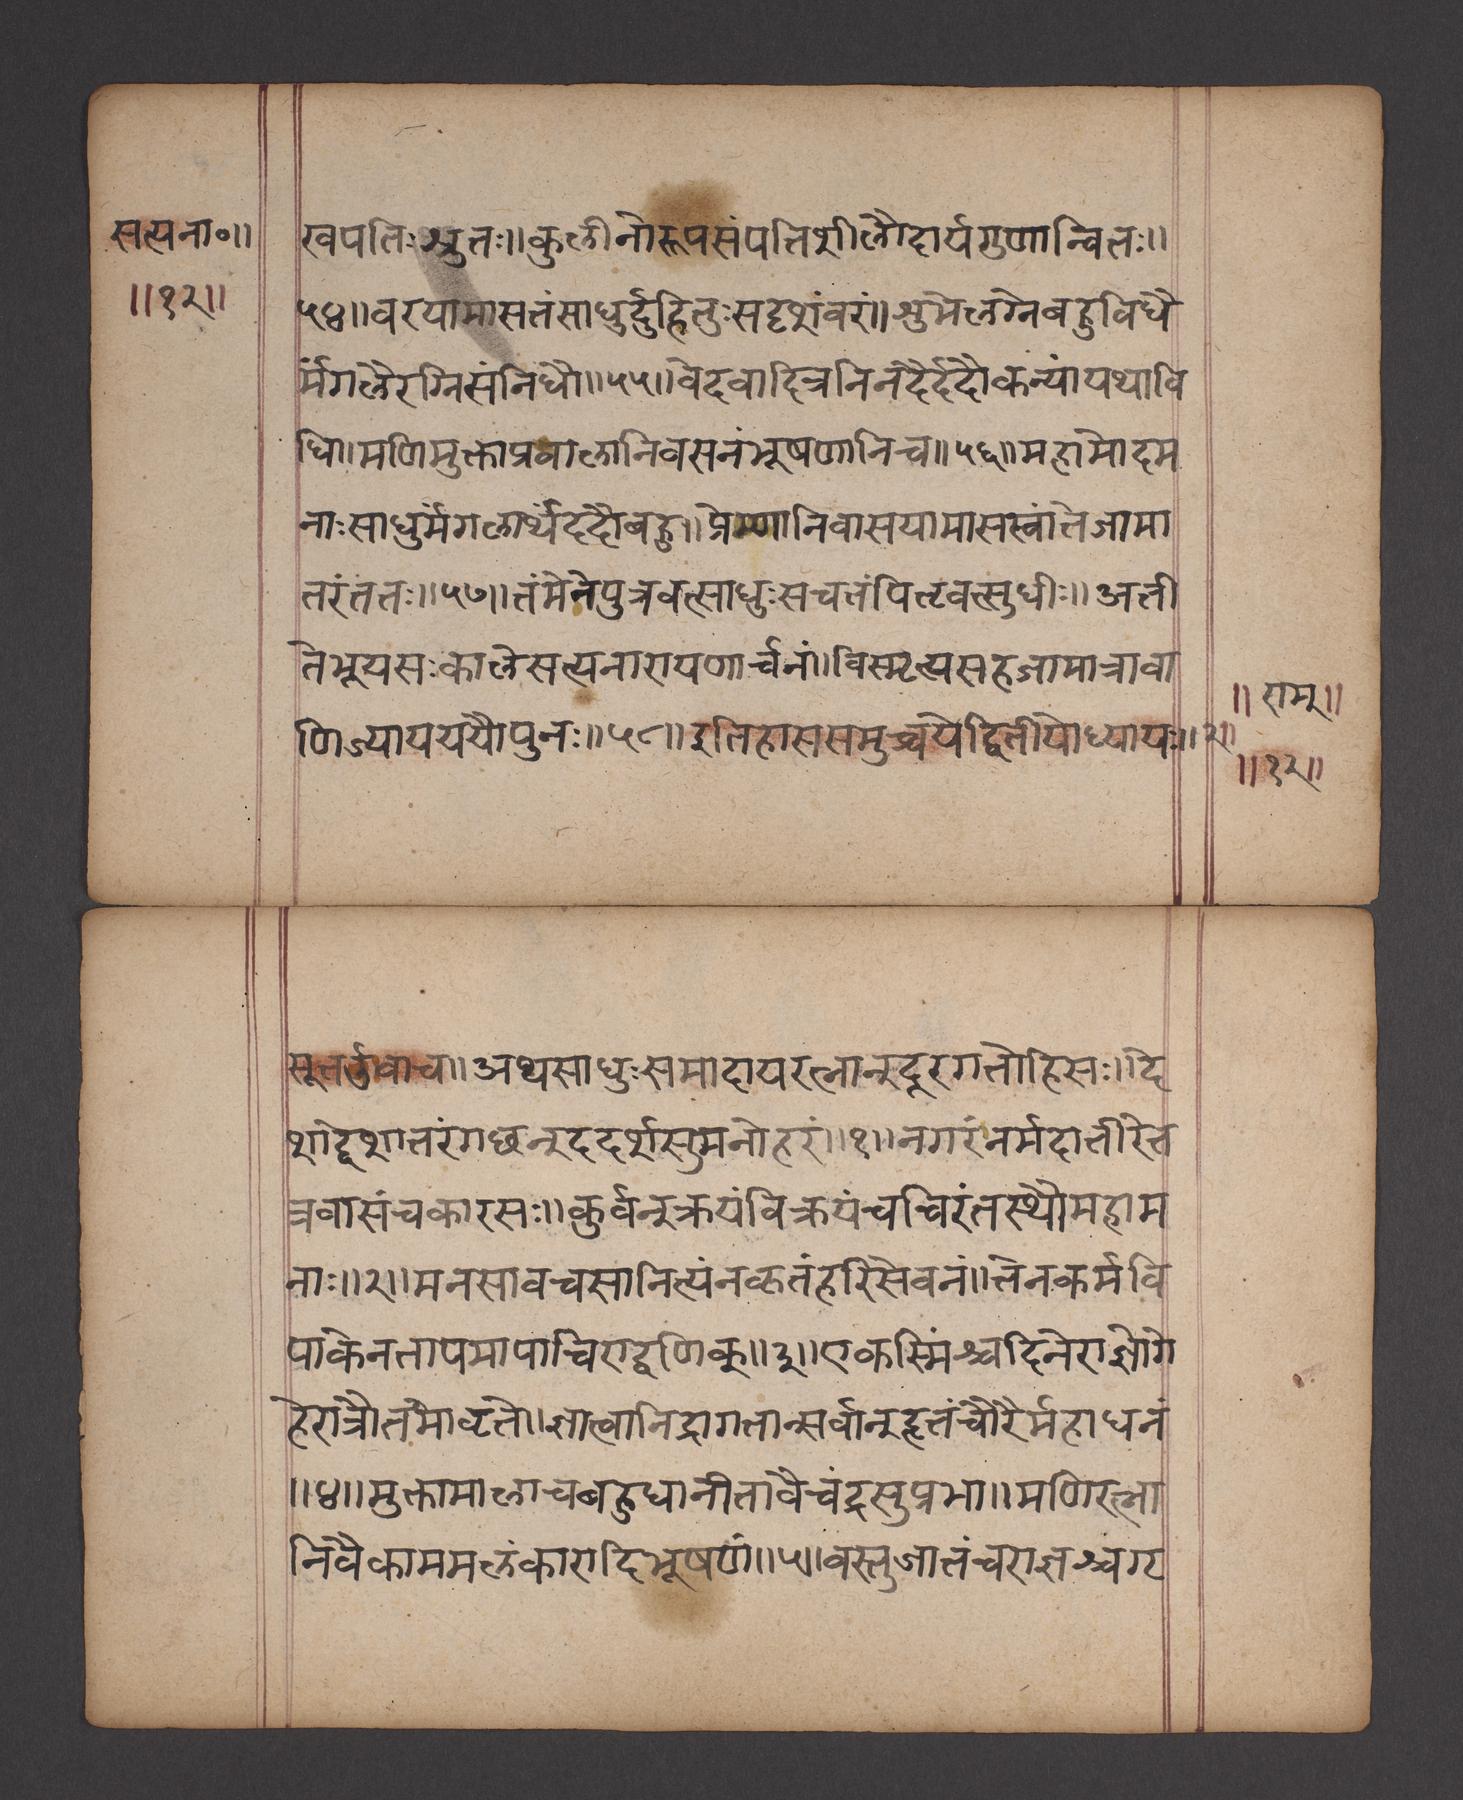 सत्यना०॥
॥१२॥
खपतिःश्रुतः॥कुलीनोरूपसंपत्तिशीलौदार्यगुणान्वितः॥
५४॥वरयामासतंसाधुर्दुहितुःसदृशंवरं॥शुभेलग्नेबहुविधै
र्मंगलैरग्निसंनिधौ॥५५॥वेदवादित्रनिनदैर्ददौकन्यांयथावि
धि॥मणिमुक्ताप्रवालानिवसनंभूषणानिच॥५६॥महामोदम
नाःसाधुर्मंगलार्थंददौबहु॥प्रेम्णानिवासयामासस्वांतेजामा
तरंततः॥५७॥तंमेनेपुत्रवत्साधुःसचतंपितृवत्सुधीः॥अती
तेभूयसःकालेसत्यनारायणार्चनं॥विस्मृत्यसहजामात्रावा
णिज्यायययौपुनः॥५८॥इतिहाससमुच्चयेद्वितीयोध्यायः॥२॥
॥रामू॥
॥१२॥
सूतउवाच॥अथसाधुःसमादायरत्नान्दूरगतोहिसः॥दे
शाद्देशांतरंगछन्ददर्शसुमनोहरं॥१॥नगरंनर्मदातीरेत
त्रवासंचकारसः॥कुर्वन्क्रयंविक्रयंचचिरंतस्थौमहाम
नाः॥२॥मनसावचसानित्यंनकृतंहरिसेवनं॥तेनकर्मवि
पाकेनतापमापाचिराद्वणिक्॥३॥एकस्मिंश्चदिनेराज्ञोगे
हेरात्रौतमोवृते॥ज्ञात्वानिद्रागतान्सर्वान्हृतंचौरैर्महाधनं
॥४॥मुक्तामालाचबहुधानीतावैचंद्रसुप्रभा॥मणिरत्ना
निवैकाममलंकारादिभूषणं॥५॥वस्तुजातंचराज्ञश्चगृ